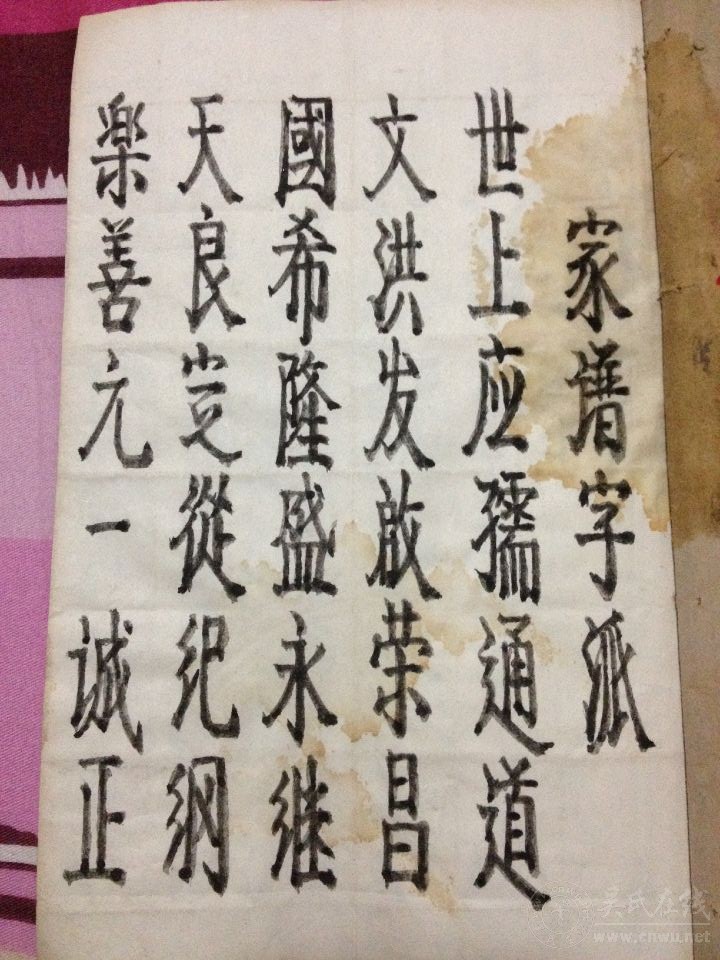 家谱字派
世上应孺通道
文洪发啟荣昌
國希隆盛永继
天良定從纪纲
楽善元一诚正
吴氏在线
www.cnwu.net